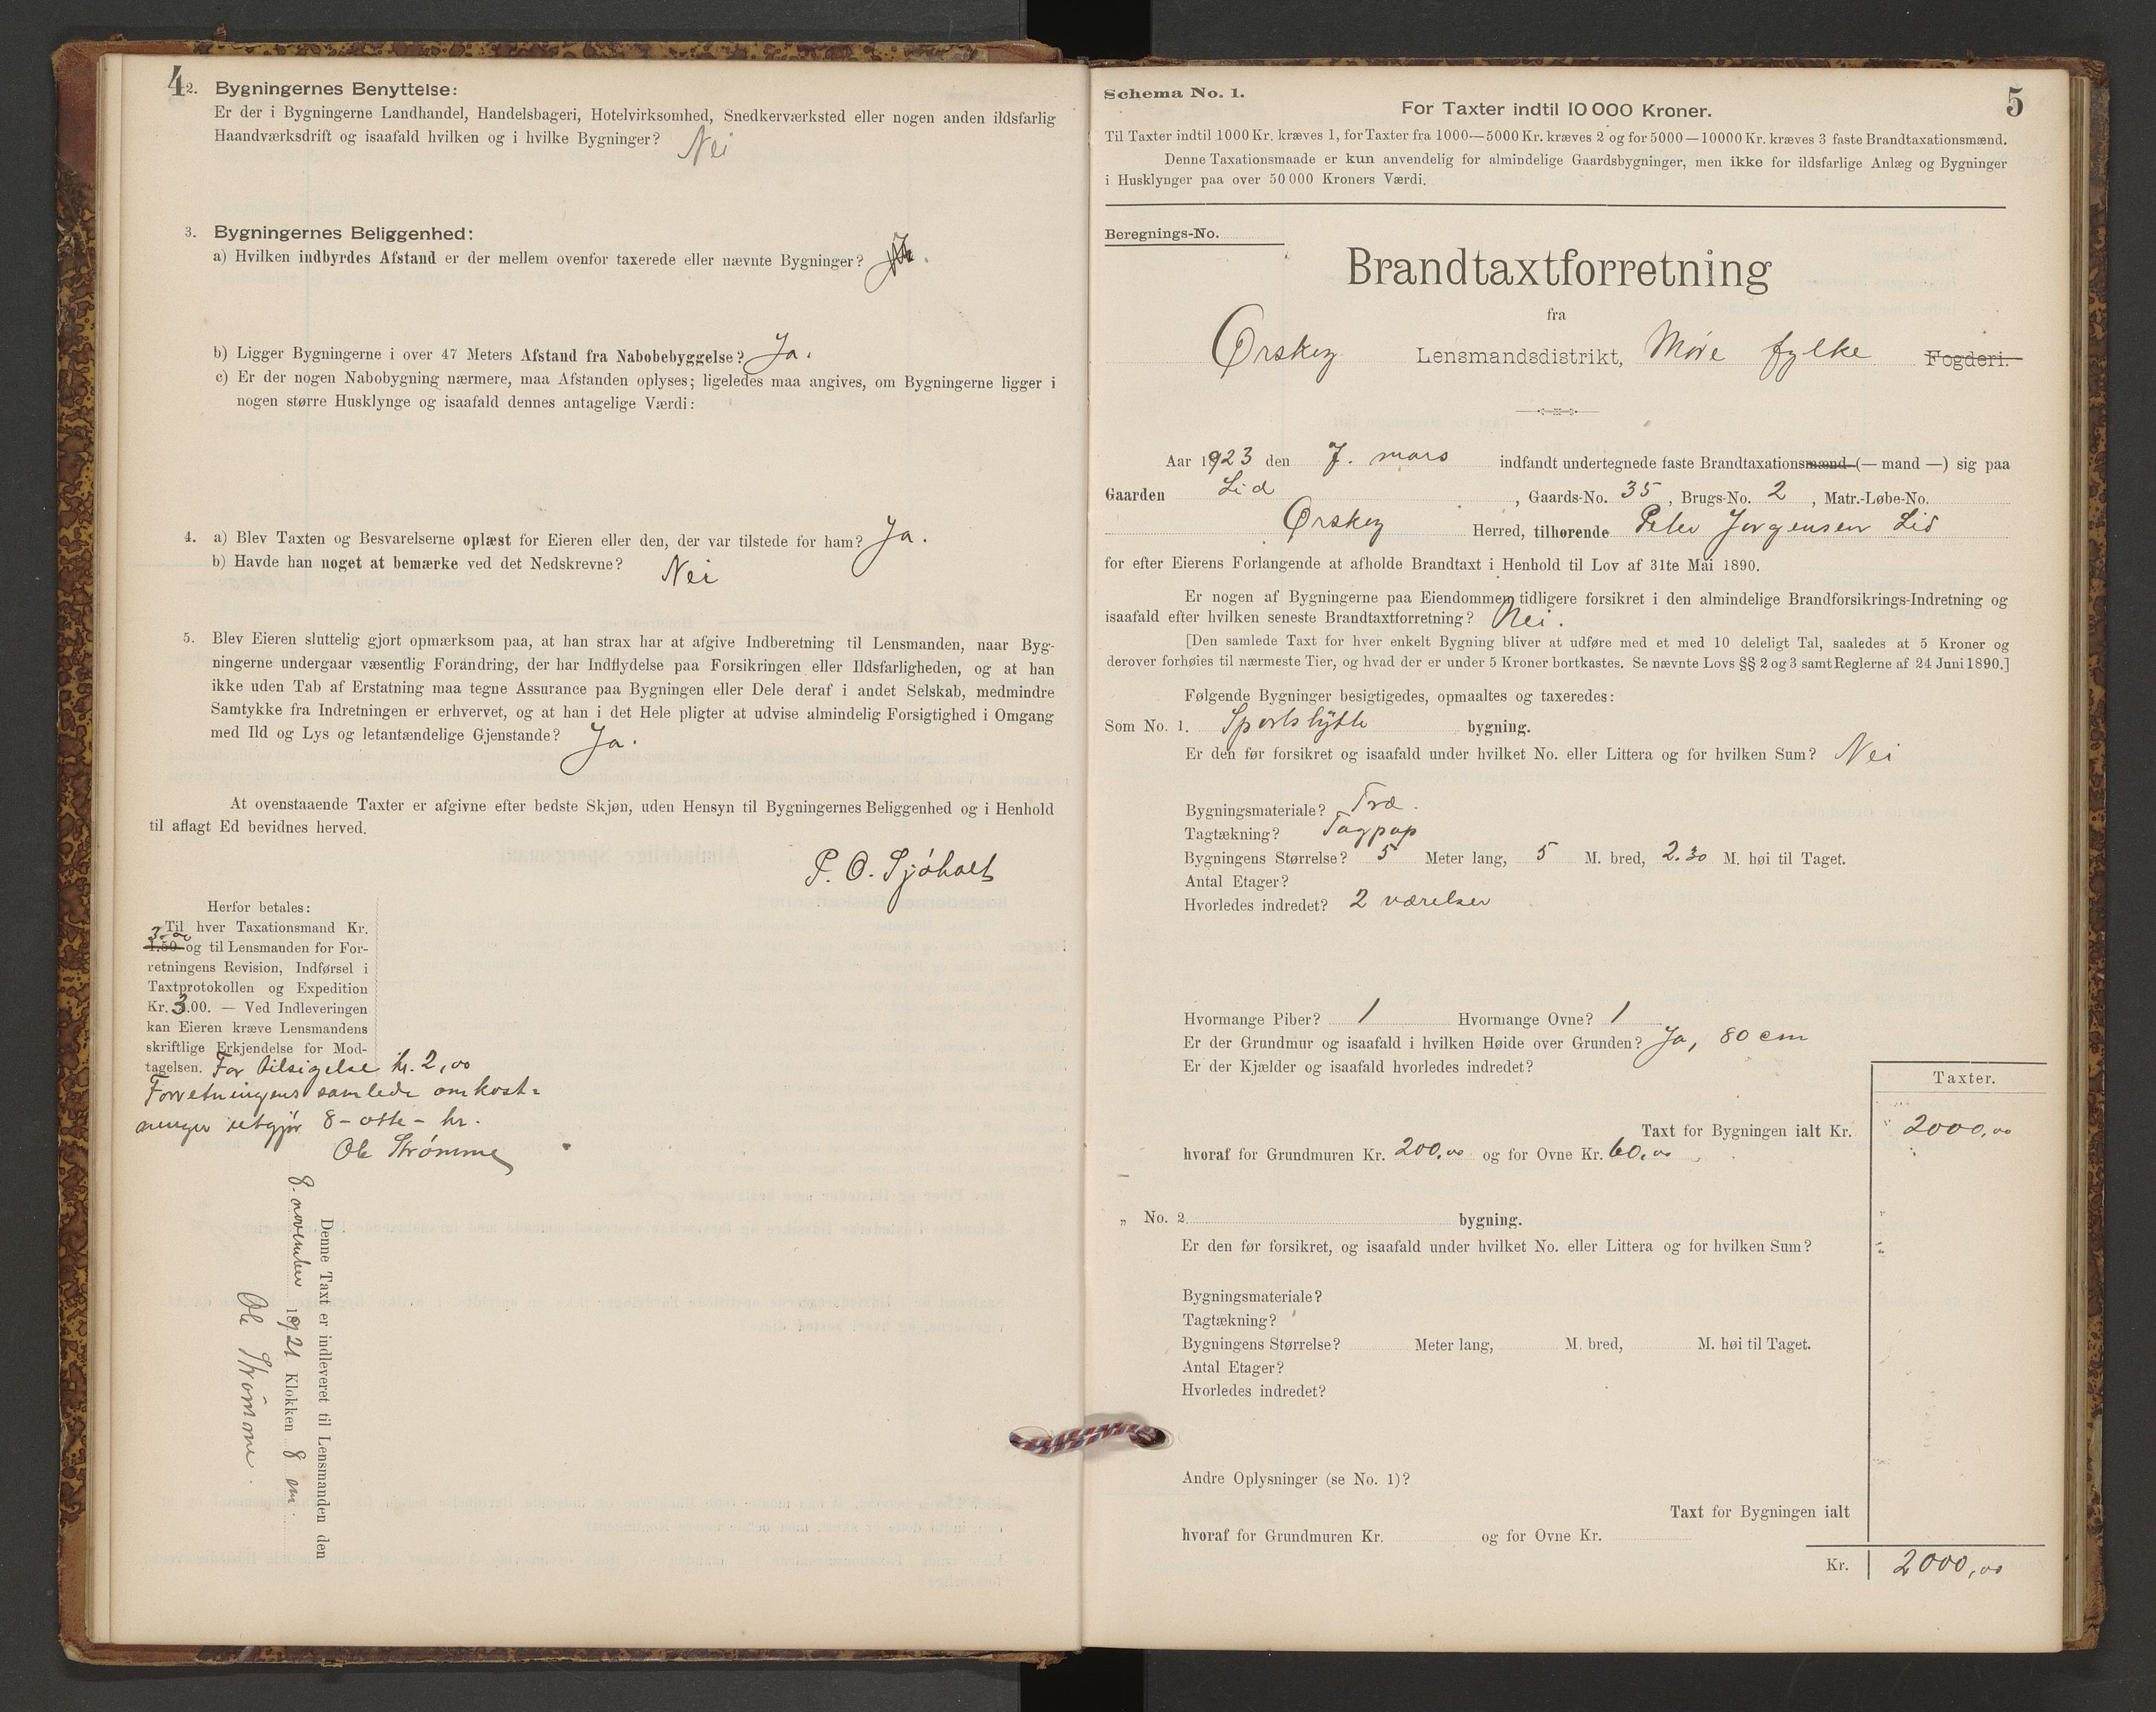 4
2. Bygningernes Benyttelse:
Er der i Bygningerne Landhandel, Handelsbageri, Hotelvirksomhed, Snedkerværksted eller nogen anden ildsfarlig
Haandværksdrift og isaafald hvilken og i hvilke Bygninger? Nei
3. Bygningernes Beliggenhed:
a) Hvilken indbyrdes Afstand er der mellem ovenfor taxerede eller nævnte Bygninger?
b) Ligger Bygningerne i over 47 Meters Afstand fra Nabobebyggelse? Ja.
c) Er der nogen Nabobygning nærmere, maa Afstanden oplyses; ligeledes maa angives, om Bygningerne ligger i
nogen større Husklynge og isaafald dennes antagelige Værdi:
4. a) Blev Taxten og Besvarelserne oplæst for Eieren eller den, der var tilstede for ham? Ja.
b) Havde han noget at bemærke ved det Nedskrevne? Nei
5. Blev Eieren sluttelig gjort opmærksom paa, at han strax har at afgive Indberetning til Lensmanden, naar Byg-
ningerne undergaar væsentlig Forandring, der har Indflydelse paa Forsikringen eller Ildsfarligheden, og at han
ikke uden Tab af Erstatning maa tegne Assurance paa Bygningen eller Dele deraf i andet Selskab, medmindre
Samtykke fra Indretningen er erhvervet, og at han i det Hele pligter at udvise almindelig Forsigtighed i Omgang
med Ild og Lys og letantændelige Gjenstande? Ja.
At ovenstaaende Taxter er afgivne efter bedste Skjøn, uden Hensyn til Bygningernes Beliggenhed og i Henhold
til aflagt Ed bevidnes herved.
P. O. Sjöholt
Herfor betales:
Til hver Taxationsmand Kr.
3-00 1.50 og til Lensmanden for For-
retningens Revision, Indførsel i
Taxtprotokollen og Expedition
Kr. 3.00. — Ved Indleveringen
kan Eieren kræve Lensmandens
skriftlige Erkjendelse for Mod-
tagelsen. For tilsigelse kr. 2,00
Forretningens samlede omkost=
ninger utgjør 8 - otte - kr.
Ole Strømme
Denne Taxt er indleveret til Lensmanden den
8. november 1921 Klokken 8 em.
Ole Strømme.
5
Schema No. 1.
For Taxter indtil 10 000 Kroner.
Til Taxter indtil 1000 Kr. kræves 1, for Taxter fra 1000—5000 Kr. kræves 2 og for 5000—10000 Kr. kræves 3 faste Brandtaxationsmænd.
Denne Taxationsmaade er kun anvendelig for almindelige Gaardsbygninger, men ikke for ildsfarlige Anlæg og Bygninger
i Husklynger paa over 50 000 Kroners Værdi.
Beregnings-No.
Brandtaxtforretning
fra
Ørskog Lensmandsdistrikt, Møre fylke Fogderi.
Aar 1923 den 7. mars indfandt undertegnede faste Brandtaxationsmænd (— mand —) sig paa
Gaarden Lid, Gaards-No. 35, Brugs-No. 2, Matr.-Løbe-No.
Ørskog Herred, tilhørende Peter Jørgensen Lid
for efter Eierens Forlangende at afholde Brandtaxt i Henhold til Lov af 31te Mai 1890.
Er nogen af Bygningerne paa Eiendommen tidligere forsikret i den almindelige Brandforsikrings-Indretning og
isaafald efter hvilken seneste Brandtaxtforretning? Nei.
[Den samlede Taxt for hver enkelt Bygning bliver at udføre med et med 10 deleligt Tal, saaledes at 5 Kroner og
derover forhøies til nærmeste Tier, og hvad der er under 5 Kroner bortkastes. Se nævnte Lovs §§ 2 og 3 samt Reglerne af 24 Juni 1890.]
Følgende Bygninger besigtigedes, opmaaltes og taxeredes:
Som No. 1. Sportshytte bygning.
Er den før forsikret og isaafald under hvilket No. eller Littera og for hvilken Sum? Nei
Bygningsmateriale? Træ.
Tagtækning? Tagpap
Bygningens Størrelse? 5 Meter lang, 5 M. bred, 2.30 M. høi til Taget.
Antal Etager?
Hvorledes indredet? 2 værelser
Hvormange Piber? 1 Hvormange Ovne? 1
Er der Grundmur og isaafald i hvilken Høide over Grunden? Ja, 80 cm
Er der Kjælder og isaafald hvorledes indredet?
Taxter.
Taxt for Bygningen ialt Kr. 2000,00
hvoraf for Grundmuren Kr. 200,00 og for Ovne Kr. 60,00
„ No. 2. bygning.
Er den før forsikret, og isaafald under hvilket No. eller Littera og for hvilken Sum?
Bygningsmateriale?
Tagtækning?
Bygningens Størrelse? Meter lang, M. bred, M. høi til Taget.
Antal Etager?
Hvorledes indredet?
Andre Oplysninger (se No. 1)?
Taxt for Bygningen ialt
hvoraf for Grundmuren Kr. og for Ovne Kr.
Kr. 2000,00